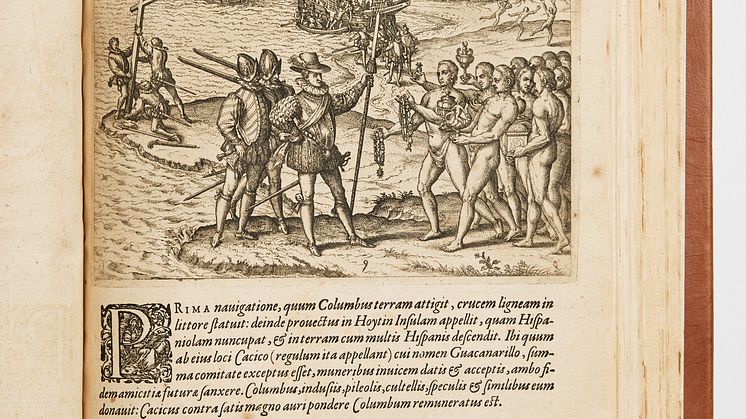 9
PRIMA nauigatione, quum Columbus terram attigit, crucem ligneam in
littore ſtatuit: deinde prouectus in Hoytin Inſulam appellit, quam Hiſpa-
niolam nuncupat, & in terram cum multis Hiſpanis deſcendit. Ibi quum
ab eius loci Cacico (regulum ita appellant) cui nomen Guacanarillo, ſum-
ma comitate exceptus eſſet, muneribus inuicem datis & acceptis, ambo fi-
dem amicitiæ futuræ ſanxere. Columbus, induſiis, pileolis, cultellis, ſpeculis & ſimilibus eum
donauit: Cacicus contra ſatis magno auri pondere Columbum remuneratus eſt.